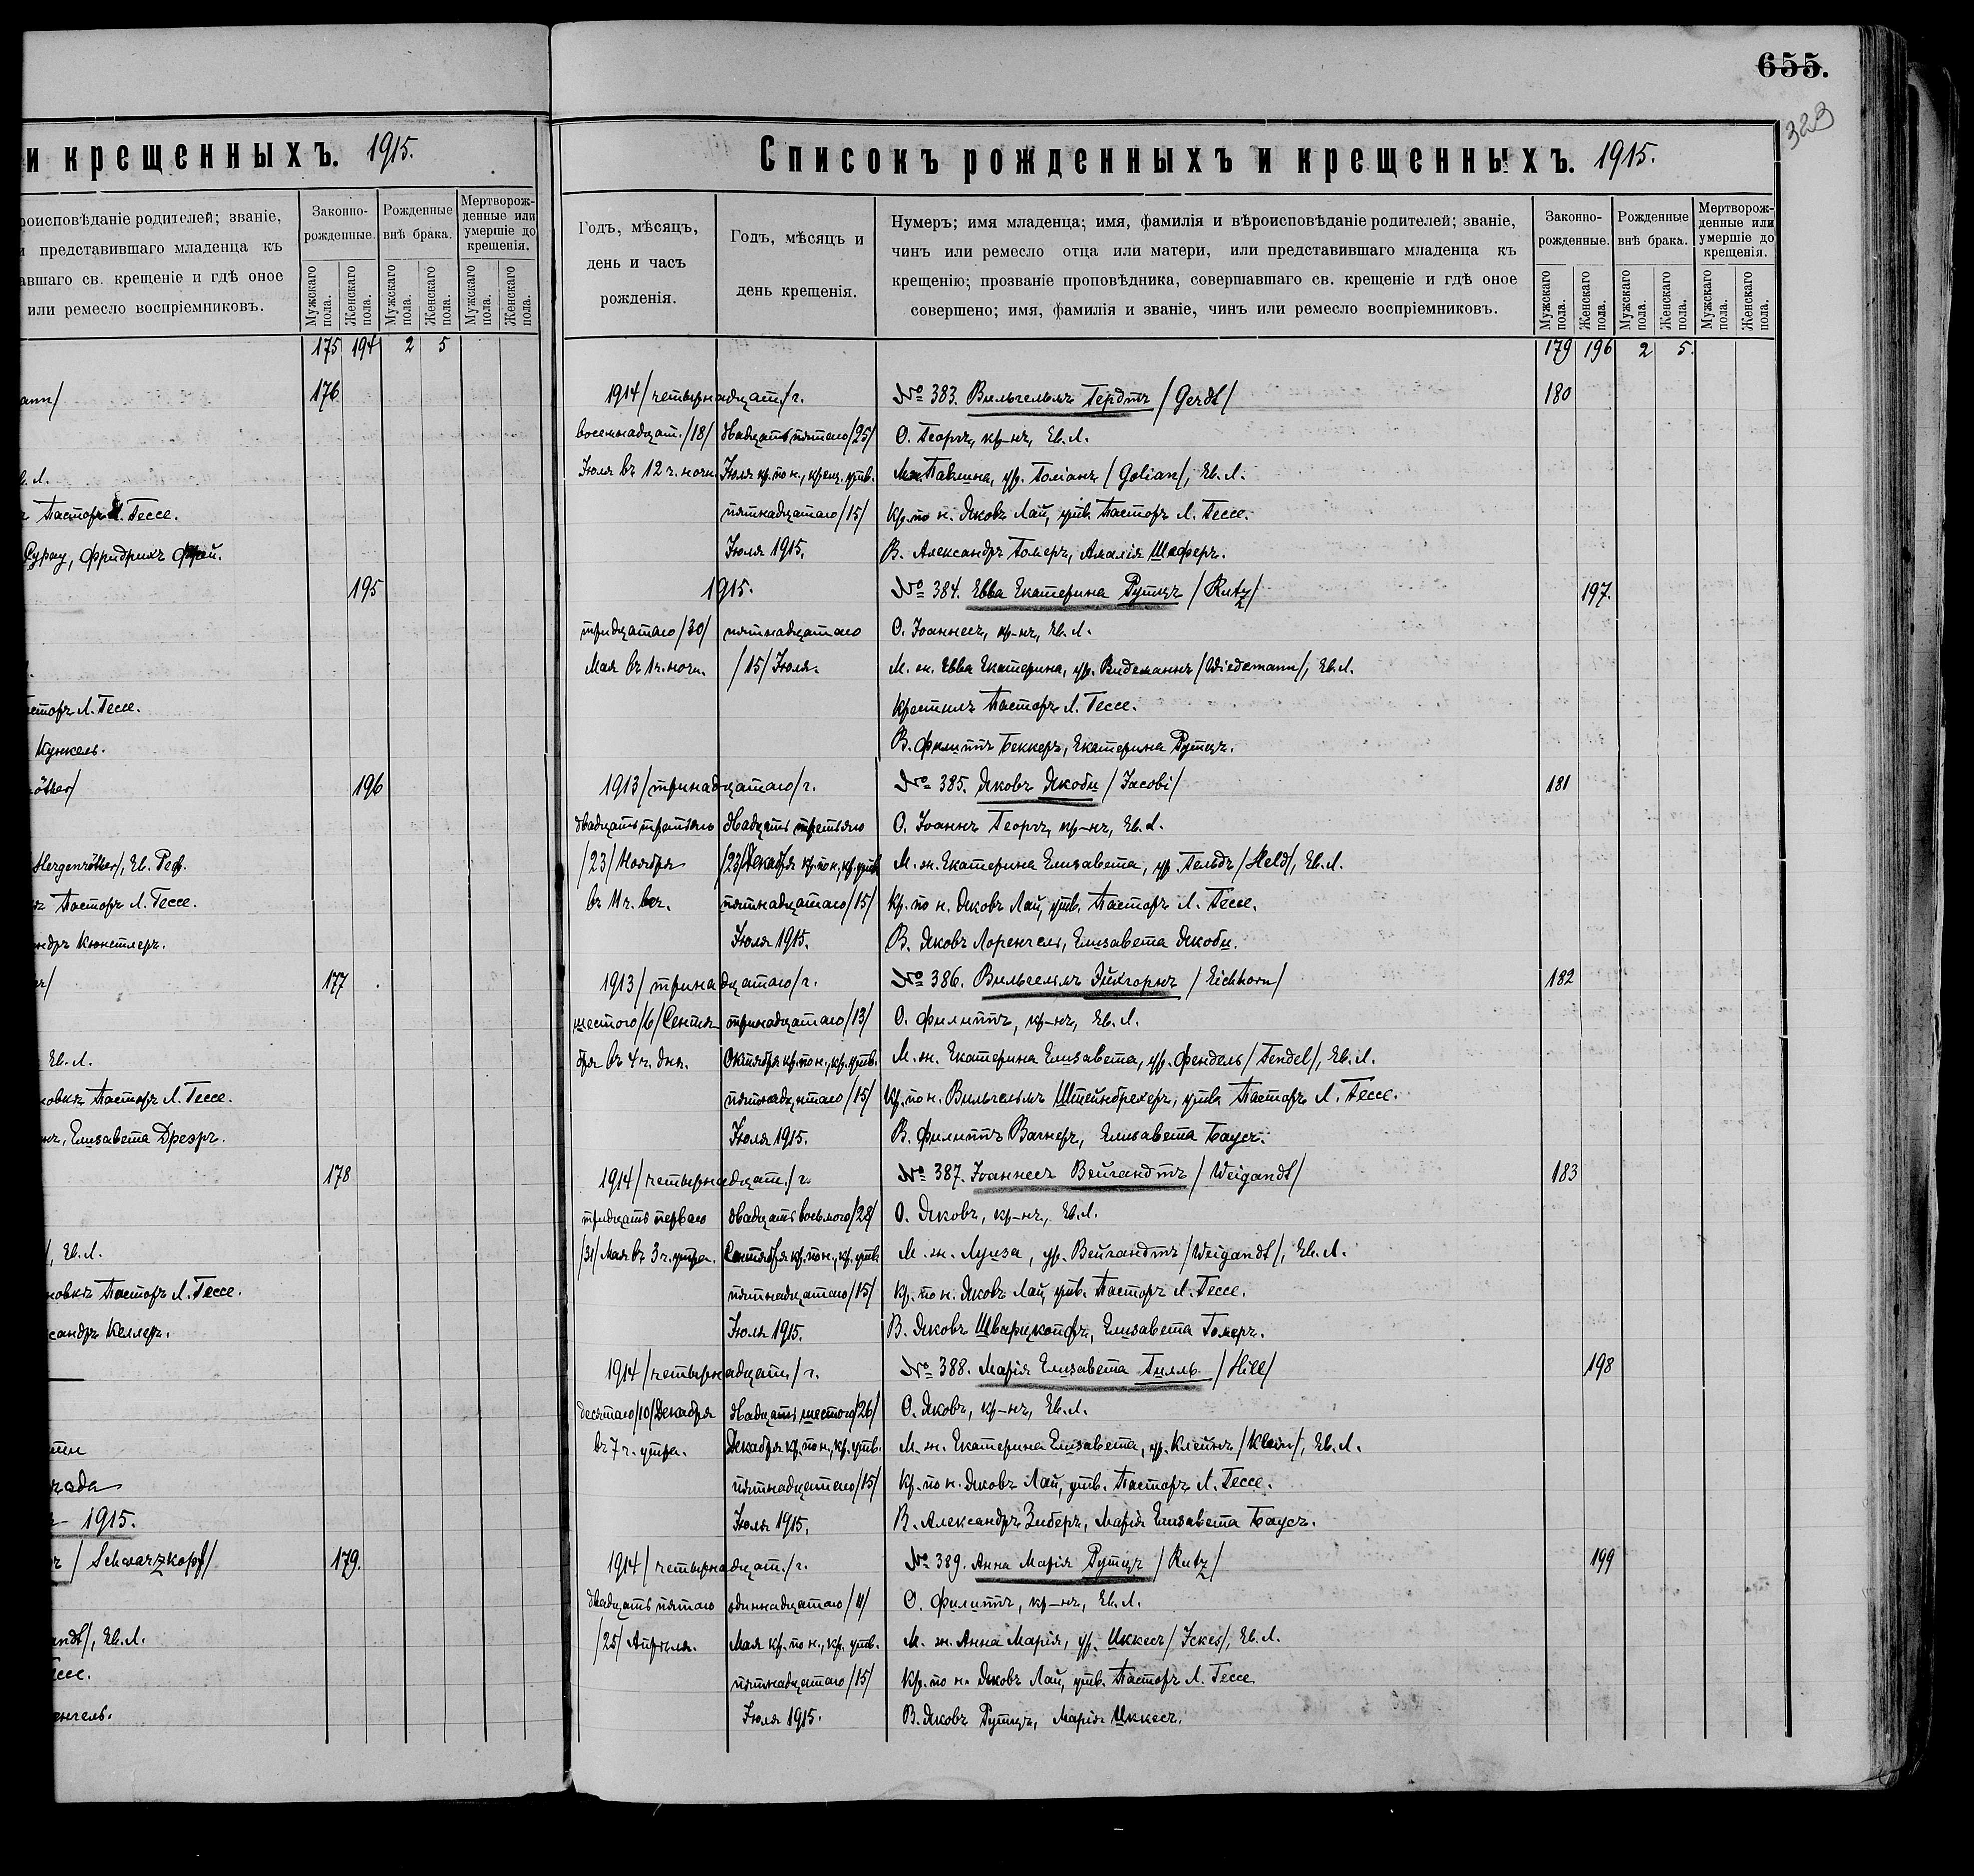 и крещенныхъ. 1915.
роисповѣданіе родителей; званіе,
и представившаго младенца къ
авшаго св. крещеніе и гдѣ оное
или ремесло воспріемниковъ.
Законно-рожденные.
Рожденные внѣ брака.
Мертворож-денные или умершіе до крещенія.
Мужскаго пола. Женскаго пола. Мужскаго пола. Женскаго пола. Мужскаго пола. Женскаго пола.
175 194 2 5
ann/ 176
Ев. Л.
Пасторъ Л. Гессе.
Сурау, Фридрихъ Фрей.
195
сторъ Л. Гессе.
Кункель.
öther/ 196
Hergenröther/, Ев. Реф.
Пасторъ Л. Гессе.
ндръ Кюнстлеръ.
er/ 177
Ев. Л.
новкъ Пасторъ Л. Гессе.
нъ, Елизавета Дреэръ.
178
/, Ев. Л.
новкъ Пасторъ Л. Гессе.
сандръ Келлеръ.
1915.
/ Schwarzkopf/ 179.
andt/, Ев. Л.
ессе.
енгель.
655.
323
Списокъ рожденныхъ и крещенныхъ. 1915.
Годъ, мѣсяцъ,
день и часъ
рожденія.
Годъ, мѣсяцъ и
день крещенія.
Нумеръ; имя младенца; имя, фамилія и вѣроисповѣданіе родителей; званіе,
чинъ или ремесло отца или матери, или представившаго младенца къ
крещенію; прозваніе проповѣдника, совершавшаго св. крещеніе и гдѣ оное
совершено; имя, фамилія и званіе, чинъ или ремесло воспріемниковъ.
Законно-рожденные.
Рожденные внѣ брака.
Мертворож-денные или умершіе до крещенія.
Мужскаго пола. Женскаго пола. Мужскаго пола. Женскаго пола. Мужскаго пола. Женскаго пола.
179 196 2 5.
1914/четырнадцат./г. № 383. Вильгельмъ Гердтъ /Gerdt/ 180
восемнадцат./18/ двадцать пятаго/25/ О. Георгъ, кр-нъ, Ев. Л.
Іюля въ 12 ч. ночи. Іюля кр. по н., крещ. утв. М. Павлина, ур. Голіанъ /Golian/, Ев. Л.
пятнадцатаго/15/ Кр. по н. Яковъ Лай, утв. Пасторъ Л. Гессе.
Іюля 1915. В. Александръ Гомеръ, Амалія Шеферъ.
1915. № 384. Евва Екатерина Рутцъ /Rutz/ 197.
тридцатаго/30/ пятнадцатаго О. Іоаннесъ, кр-нъ, Ев. Л.
Мая въ 1 ч. ночи. /15/ Іюля. М. ж. Евва Екатерина, ур. Видеманнъ /Wiedemann/, Ев. Л.
Крестилъ Пасторъ Л. Гессе.
В. Филиппъ Беккеръ, Екатерина Рутцъ.
1913/тринадцатаго/г. № 385. Яковъ Якоби /Jacobi/ 181
двадцать третьяго двадцать третьяго О. Іоаннъ Георгъ, кр-нъ, Ев. Л.
/23/ Ноября /23/ Декабря кр. по н., кр. утв. М. ж. Екатерина Елизавета, ур. Гельдъ /Held/, Ев. Л.
въ 11 ч. веч. пятнадцатаго/15/ Кр. по н. Яковъ Лай, утв. Пасторъ Л. Гессе.
Іюля 1915. В. Яковъ Лоренгель, Елизавета Якоби.
1913/тринадцатаго/г. № 386. Вильгельмъ Эйхгорнъ /Eichhorn/ 182
шестого/6/ Сентя тринадцатаго/13/ О. Филиппъ, кр-нъ, Ев. Л.
бря въ 4 ч. дня. Октября кр. по н., кр. утв. М. ж. Екатерина Елизавета, ур. Фендель /Fendel/, Ев. Л.
пятнадцатаго/15/ Кр. по н. Вильгельмъ Штейнбрехеръ, утв. Пасторъ Л. Гессе.
Іюля 1915. В. Филиппъ Вагнеръ, Елизавета Баусъ.
1914/четырнадцат./г. № 387. Іоаннесъ Вейгандтъ /Weigandt/ 183
тридцать перваго двадцать восьмого/28/ О. Яковъ, кр-нъ, Ев. Л.
/31/ Мая въ 3 ч. утра. Сентября кр. по н., кр. утв. М. ж. Луиза, ур. Вейгандтъ /Weigandt/, Ев. Л.
пятнадцатаго/15/ Кр. по н. Яковъ Лай, утв. Пасторъ Л. Гессе.
Іюля 1915. В. Яковъ Шварцкопфъ, Елизавета Гомеръ.
1914/четырнадцат./г. № 388. Марія Елизавета Гилль /Hill/ 198
десятаго/10/ Декабря двадцать шестого/26/ О. Яковъ, кр-нъ, Ев. Л.
въ 7 ч. утра. Декабря кр. по н., кр. утв. М. ж. Екатерина Елизавета, ур. Клейнъ /Klein/, Ев. Л.
пятнадцатаго/15/ Кр. по н. Яковъ Лай, утв. Пасторъ Л. Гессе.
Іюля 1915. В. Александръ Зиберъ, Марія Елизавета Баусъ.
1914/четырнадцат./г. № 389. Анна Марія Рутцъ /Rutz/ 199
двадцать пятаго одиннадцатаго/11/ О. Филиппъ, кр-нъ, Ев. Л.
/25/ Апрѣля. Мая кр. по н., кр. утв. М. ж. Анна Марія, ур. Иккесъ /Ickes/, Ев. Л.
пятнадцатаго/15/ Кр. по н. Яковъ Лай, утв. Пасторъ Л. Гессе
Іюля 1915. В. Яковъ Рутцъ, Марія Иккесъ.